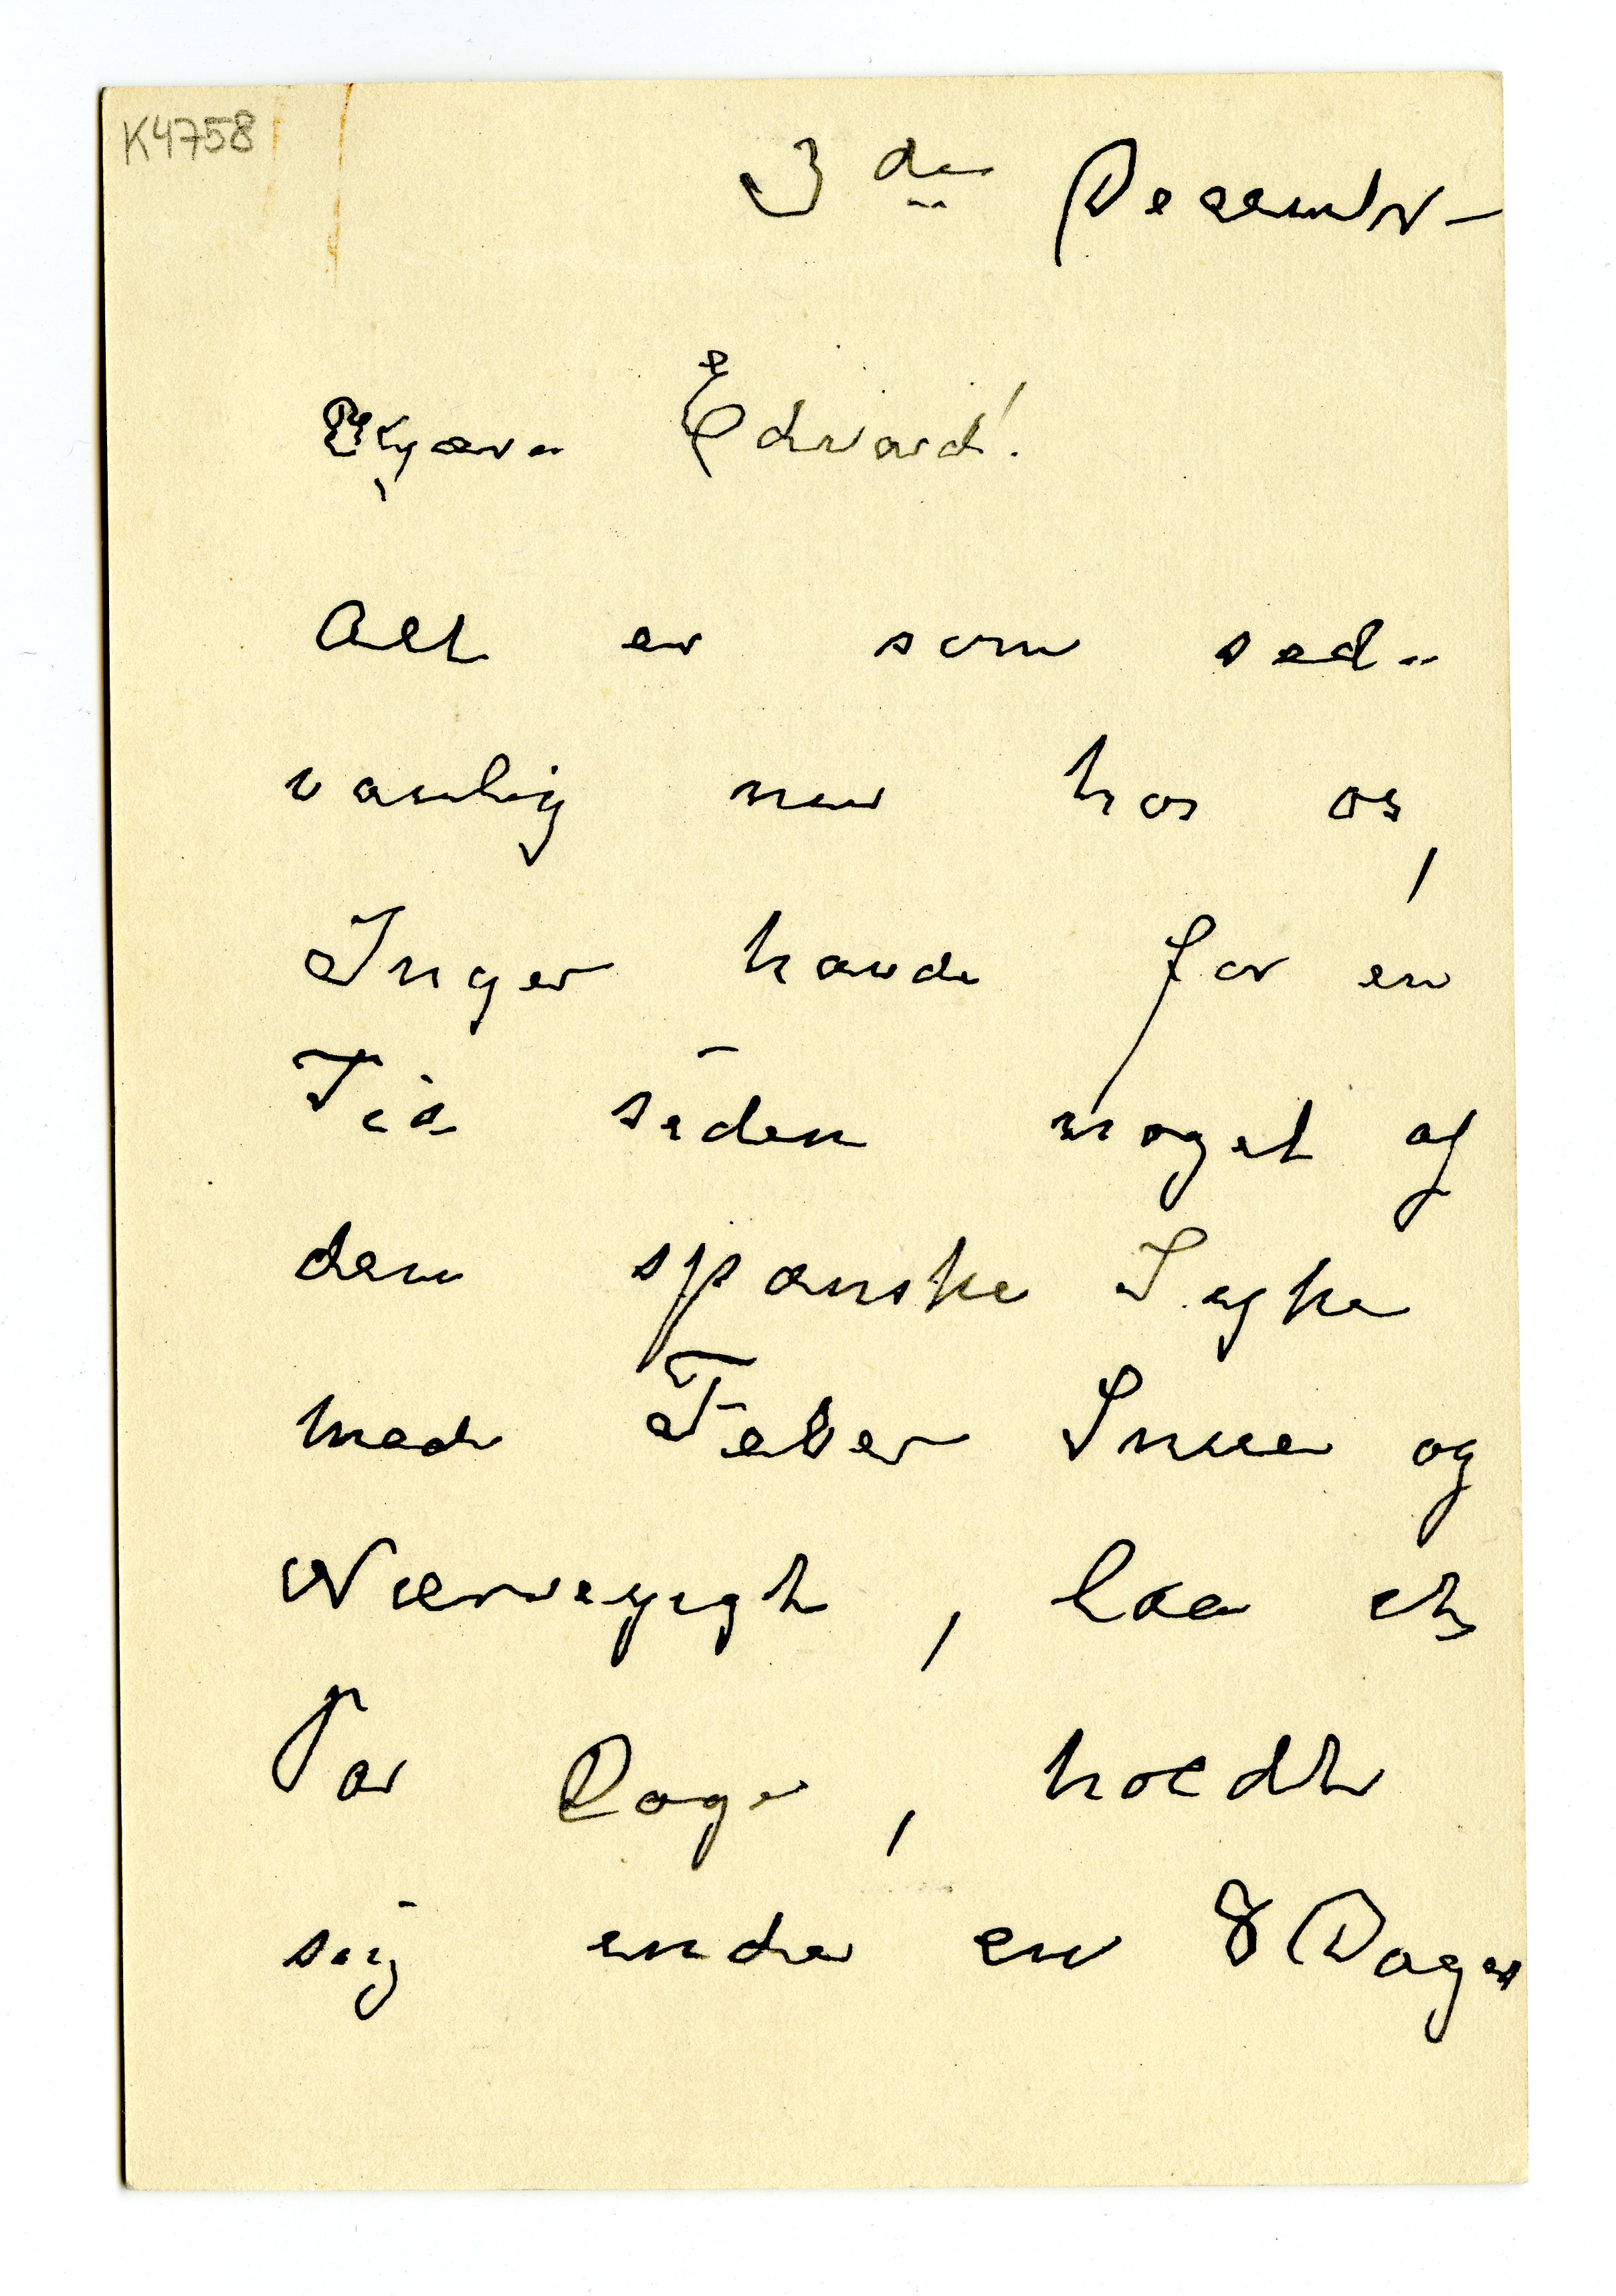 K4758
3de Decembr
Kjære Edvard!
Alt er som sed-
vanlig nu hos os,
Inger havde for en
Tid siden noget af
den spanske Syke
med Feber Snue og
Nærvegigt, laa et
Par Dage, holdt
sig inde en 8 Dager